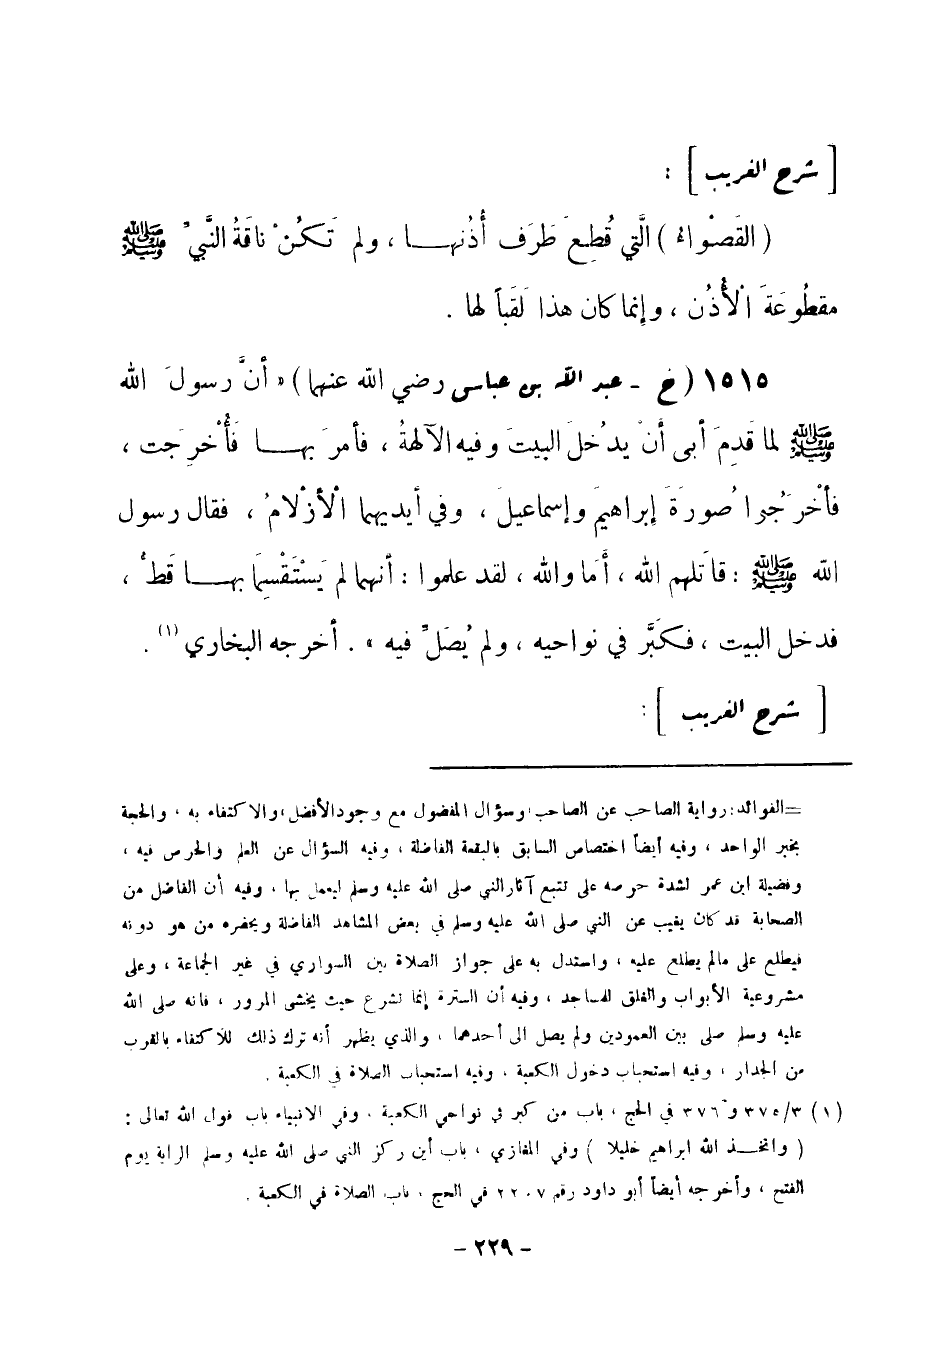 [ شرح الغريب ] :
( القَصْواءُ ) الَّتي قُطِعَ طَرَف أُذُنهـــا ، ولم تَكُنْ ناقَةُ النَّبيِّ ﷺ
مقطُوعَةَ الْأُذُن ، وإنما كان هذا لَقَباً لها .
١٥١٥ ( خ - عبد الله بن عباس رضي الله عنهما ) « أنَّ رسولَ الله
ﷺ لما قَدِمَ أبى أنْ يدْخلَ البيتَ وفيه الآلهةُ ، فأمرَ بهـــا فَأُخْرِجَت ،
فأخْرَجُوا صُورَةَ إبراهيمَ وإسماعيلَ ، وفي أيديهما الْأزْلامُ ، فقال رسول
الله ﷺ : قاتَلهم الله ، أَمَا والله ، لقد علموا : أنهما لم يَسْتَقْسِمَا بهـــا قَطُّ ،
فدخل البيت ، فكَبَّرَ في نواحيه ، ولم يُصَلِّ فيه » . أخرجه البخاري (١) .
[ شرح الغريب ] :
=الفوائد: رواية الصاحب عن الصاحب، وسؤال المفضول مع وجود الأفضل، والاكتفاء به ، والحجة
بخبر الواحد ، وفيه أيضاً اختصاص السابق بالبقعة الفاضلة ، وفيه السؤال عن العلم والحرص فيه ،
وفضيلة ابن عمر لشدة حرصه على تتبع آثار النبي صلى الله عليه وسلم ليعمل بها ، وفيه أن الفاضل من
الصحابة قد كان يغيب عن النبي صلى الله عليه وسلم في بعض المشاهد الفاضلة ويحضره من هو دونه
فيطلع على مالم يطلع عليه ، واستدل به على جواز الصلاة بين السواري في غير الجماعة ، وعلى
مشروعية الأبواب والغلق للمساجد ، وفيه أن السترة إنما تشرع حيث يخشى المرور ، فانه صلى الله
عليه وسلم صلى بين العمودين ولم يصل الى أحدهما ، والذي يظهر أنه ترك ذلك للاكتفاء بالقرب
من الجدار ، وفيه استحباب دخول الكعبة ، وفيه استحباب الصلاة في الكعبة .
(١) ٣/٣٧٥ و ٣٧٦ في الحج ، باب من كبر في نواحي الكعبة ، وفي الانبياء باب قول الله تعالى :
( واتخـــذ الله ابراهيم خليلا ) وفي المغازي ، باب أين ركز النبي صلى الله عليه وسلم الراية يوم
الفتح ، وأخرجه أيضاً أبو داود رقم ٢٢٠٧ في الحج ، باب الصلاة في الكعبة .
- ٢٢٩ -